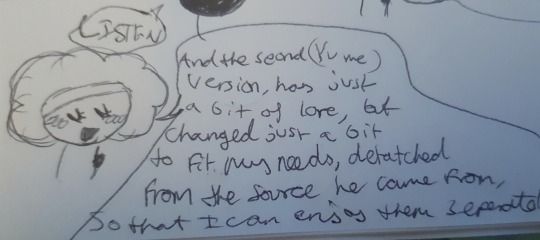 LISTEN
And the second (Yume)
Version, has just
a bit of lore, but
Changed just a bit
to fit my needs, detatched
from the source he came from,
So that I can enjoy them seperate